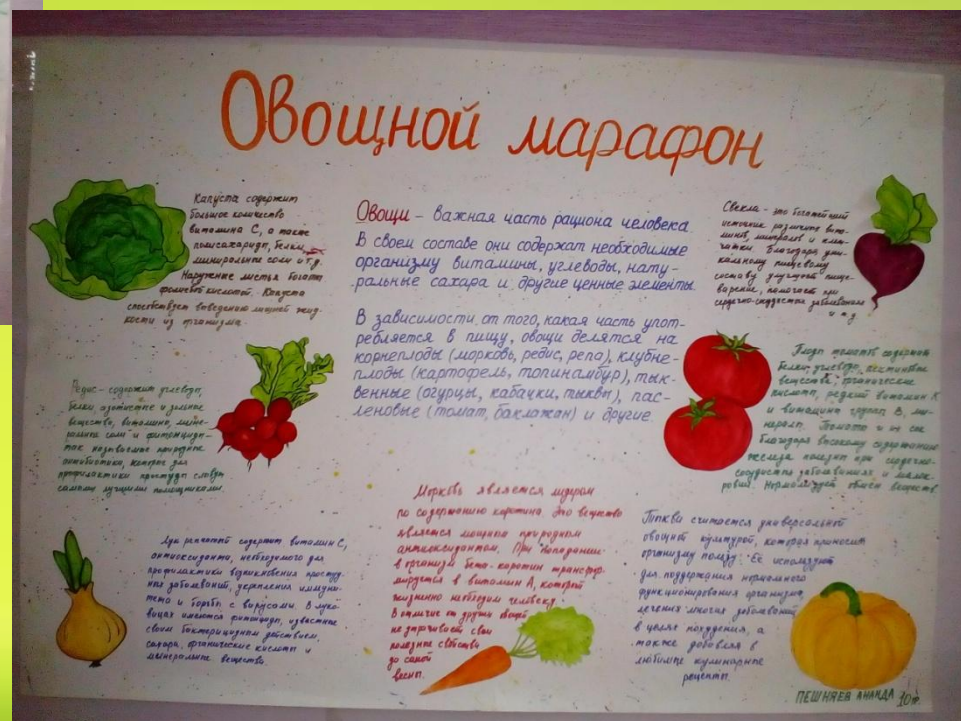 Овощной марафон
Капуста содержит
большое количество
витамина С, а также
полисахариды, белки,
минеральные соли и т.д.
Наружные листья богаты
фолиевой кислотой. Капуста
способствует выведению лишней жид-
кости из организма.
Овощи - важная часть рациона человека.
В своем составе они содержат необходимые
организму витамины, углеводы, нату-
ральные сахара и другие ценные элементы.
В зависимости от того, какая часть упот-
ребляется в пищу, овощи делятся на
корнеплоды (морковь, редис, репа), клубне-
плоды (картофель, топинамбур), тык-
венные (огурцы, кабачки, тыквы), пас-
леновые (томат, баклажан) и другие.
Свекла - это богатейший
источник различных вита-
минов, минералов и клет-
чатки. Благодаря уни-
кальному пищевому
составу улучшает пище-
варение, помогает при
сердечно-сосудистых заболеваниях
и т.д.
Редис - содержит углеводы,
белки, азотистые и зольные
вещества, витамины, мине-
ральные соли и фитонциды -
так называемые природные
антибиотики, которые для
профилактики простуды служат
самыми лучшими помощниками.
Плоды томатов содержат
белки, углеводы, пектиновые
вещества, органические
кислоты, редкий витамин К
и витамины групп В, ми-
нералы. Томаты и их сок
благодаря высокому содержанию
железа полезны при сердечно-
сосудистых заболеваниях и малок-
ровии. Нормализует обмен веществ
Лук репчатый содержит витамин С,
антиоксиданты, необходимого для
профилактики возникновения простуд-
ных заболеваний, укрепления иммуни-
тета и борьбы с вирусами. В луко-
вицах имеются фитонциды, известные
своим бактерицидным действием,
сахара, органические кислоты и
минеральные вещества.
Морковь является лидером
по содержанию каротина. Это вещество
является мощным природным
антиоксидантом. При попадании
в организм бета-каротин трансфор-
мируется в витамин А, который
жизненно необходим человеку.
В отличие от других овощей
не утрачивает свои
полезные свойства
до самой
весны.
Тыква считается универсальной
овощной культурой, которая приносит
организму пользу. Её используют
для поддержания нормального
функционирования организма,
лечения многих заболеваний,
в целях похудения, а
также добавляя в
любимые кулинарные
рецепты.
ПЕШНЯЕВ АНАНДА 10